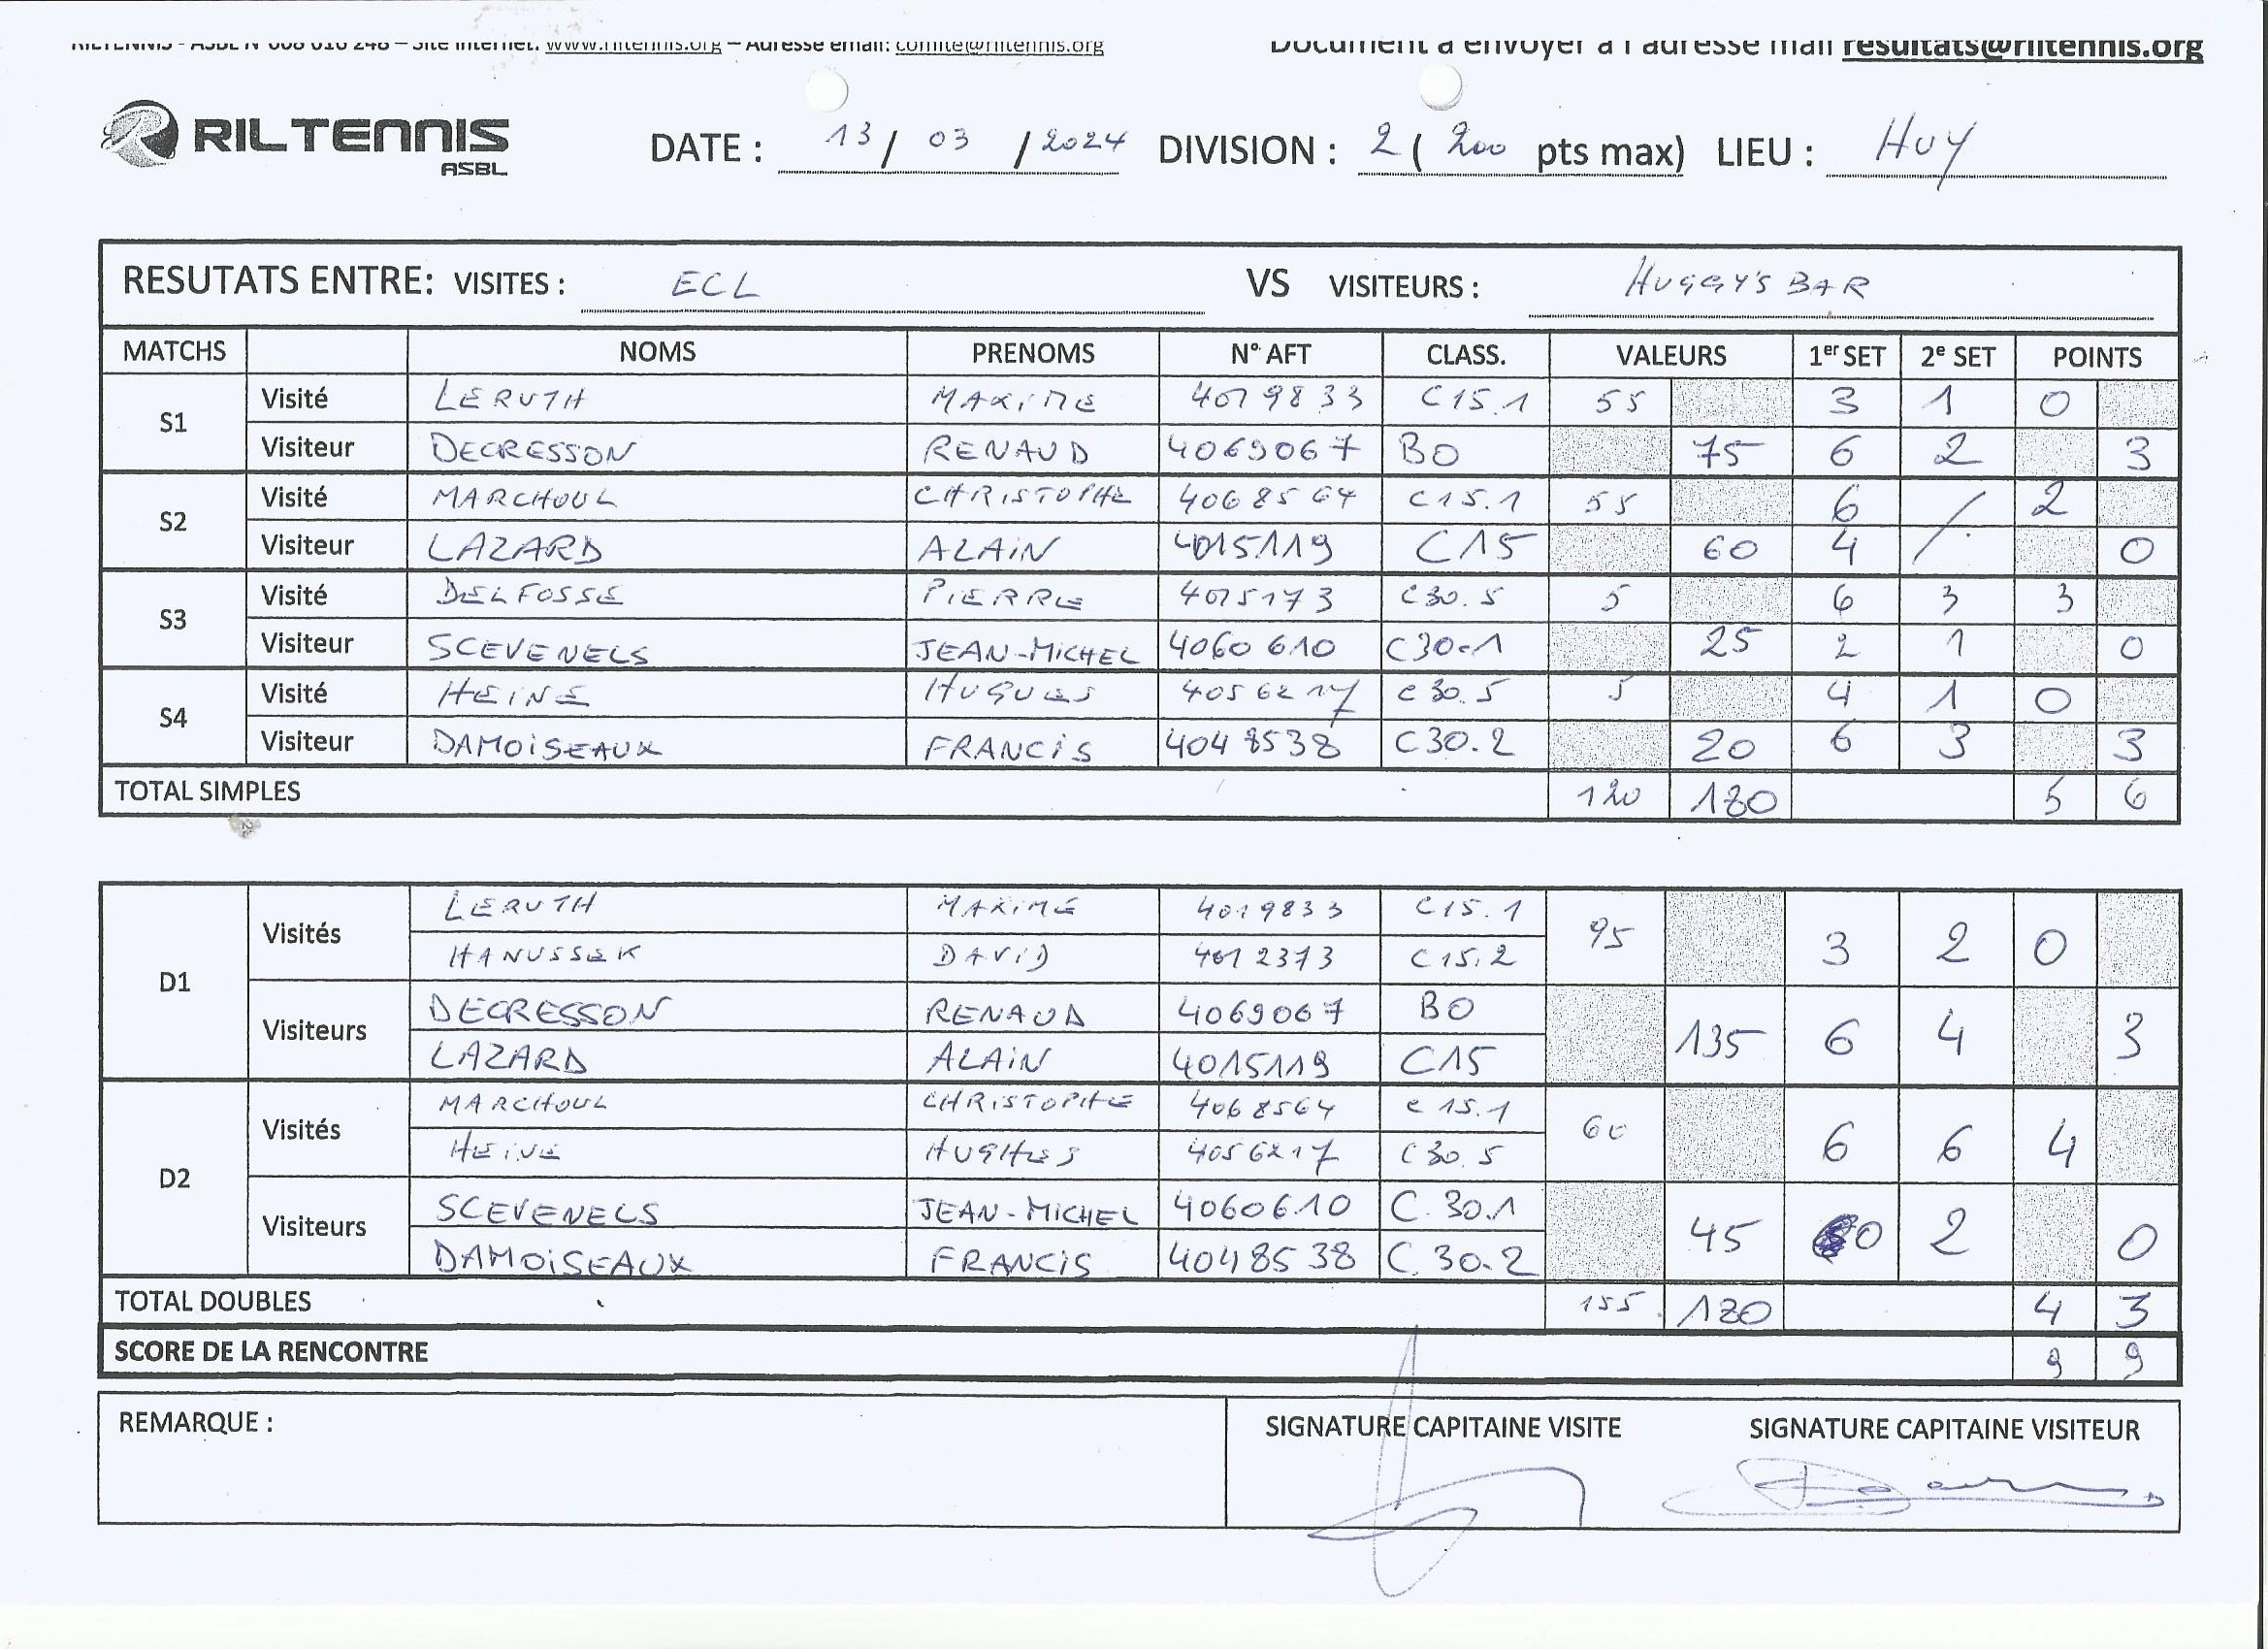 RILTENNIS - ASBL N° 008 016 248 – Site internet: www.riltennis.org – Adresse email: comite@riltennis.org Document à envoyer à l'adresse mail resultats@riltennis.org
RILTENNIS ASBL DATE : 13 / 03 / 2024 DIVISION : 2 ( 200 pts max) LIEU : HUY
RESUTATS ENTRE: VISITES : ECL VS VISITEURS : HUGGY'S BAR
MATCHS NOMS PRENOMS N° AFT CLASS. VALEURS 1er SET 2e SET POINTS
S1 Visité LERUTH MAXIME 4019833 C15.1 55 3 1 0
Visiteur DECRESSON RENAUD 4069067 B0 75 6 2 3
S2 Visité MARCHOUL CHRISTOPHE 4068564 C15.1 55 6 / 2
Visiteur LAZARD ALAIN 4015119 C15 60 4 / 0
S3 Visité DELFOSSE PIERRE 4015173 C30.5 5 6 3 3
Visiteur SCEVENELS JEAN-MICHEL 4060610 C30.1 25 2 1 0
S4 Visité HEINE HUGUES 4056217 C30.5 5 4 1 0
Visiteur DAMOISEAUX FRANCIS 4048538 C30.2 20 6 3 3
TOTAL SIMPLES 120 180 5 6
D1 Visités LERUTH MAXIME 4019833 C15.1 95 3 2 0
HANUSSEK DAVID 4012373 C15.2
Visiteurs DECRESSON RENAUD 4069067 B0 135 6 4 3
LAZARD ALAIN 4015119 C15
D2 Visités MARCHOUL CHRISTOPHE 4068564 C15.1 60 6 6 4
HEINE HUGHES 4056217 C30.5
Visiteurs SCEVENELS JEAN-MICHEL 4060610 C.30.1 45 0 2 0
DAMOISEAUX FRANCIS 4048538 C.30.2
TOTAL DOUBLES 155 180 4 3
SCORE DE LA RENCONTRE 9 9
REMARQUE : SIGNATURE CAPITAINE VISITE SIGNATURE CAPITAINE VISITEUR